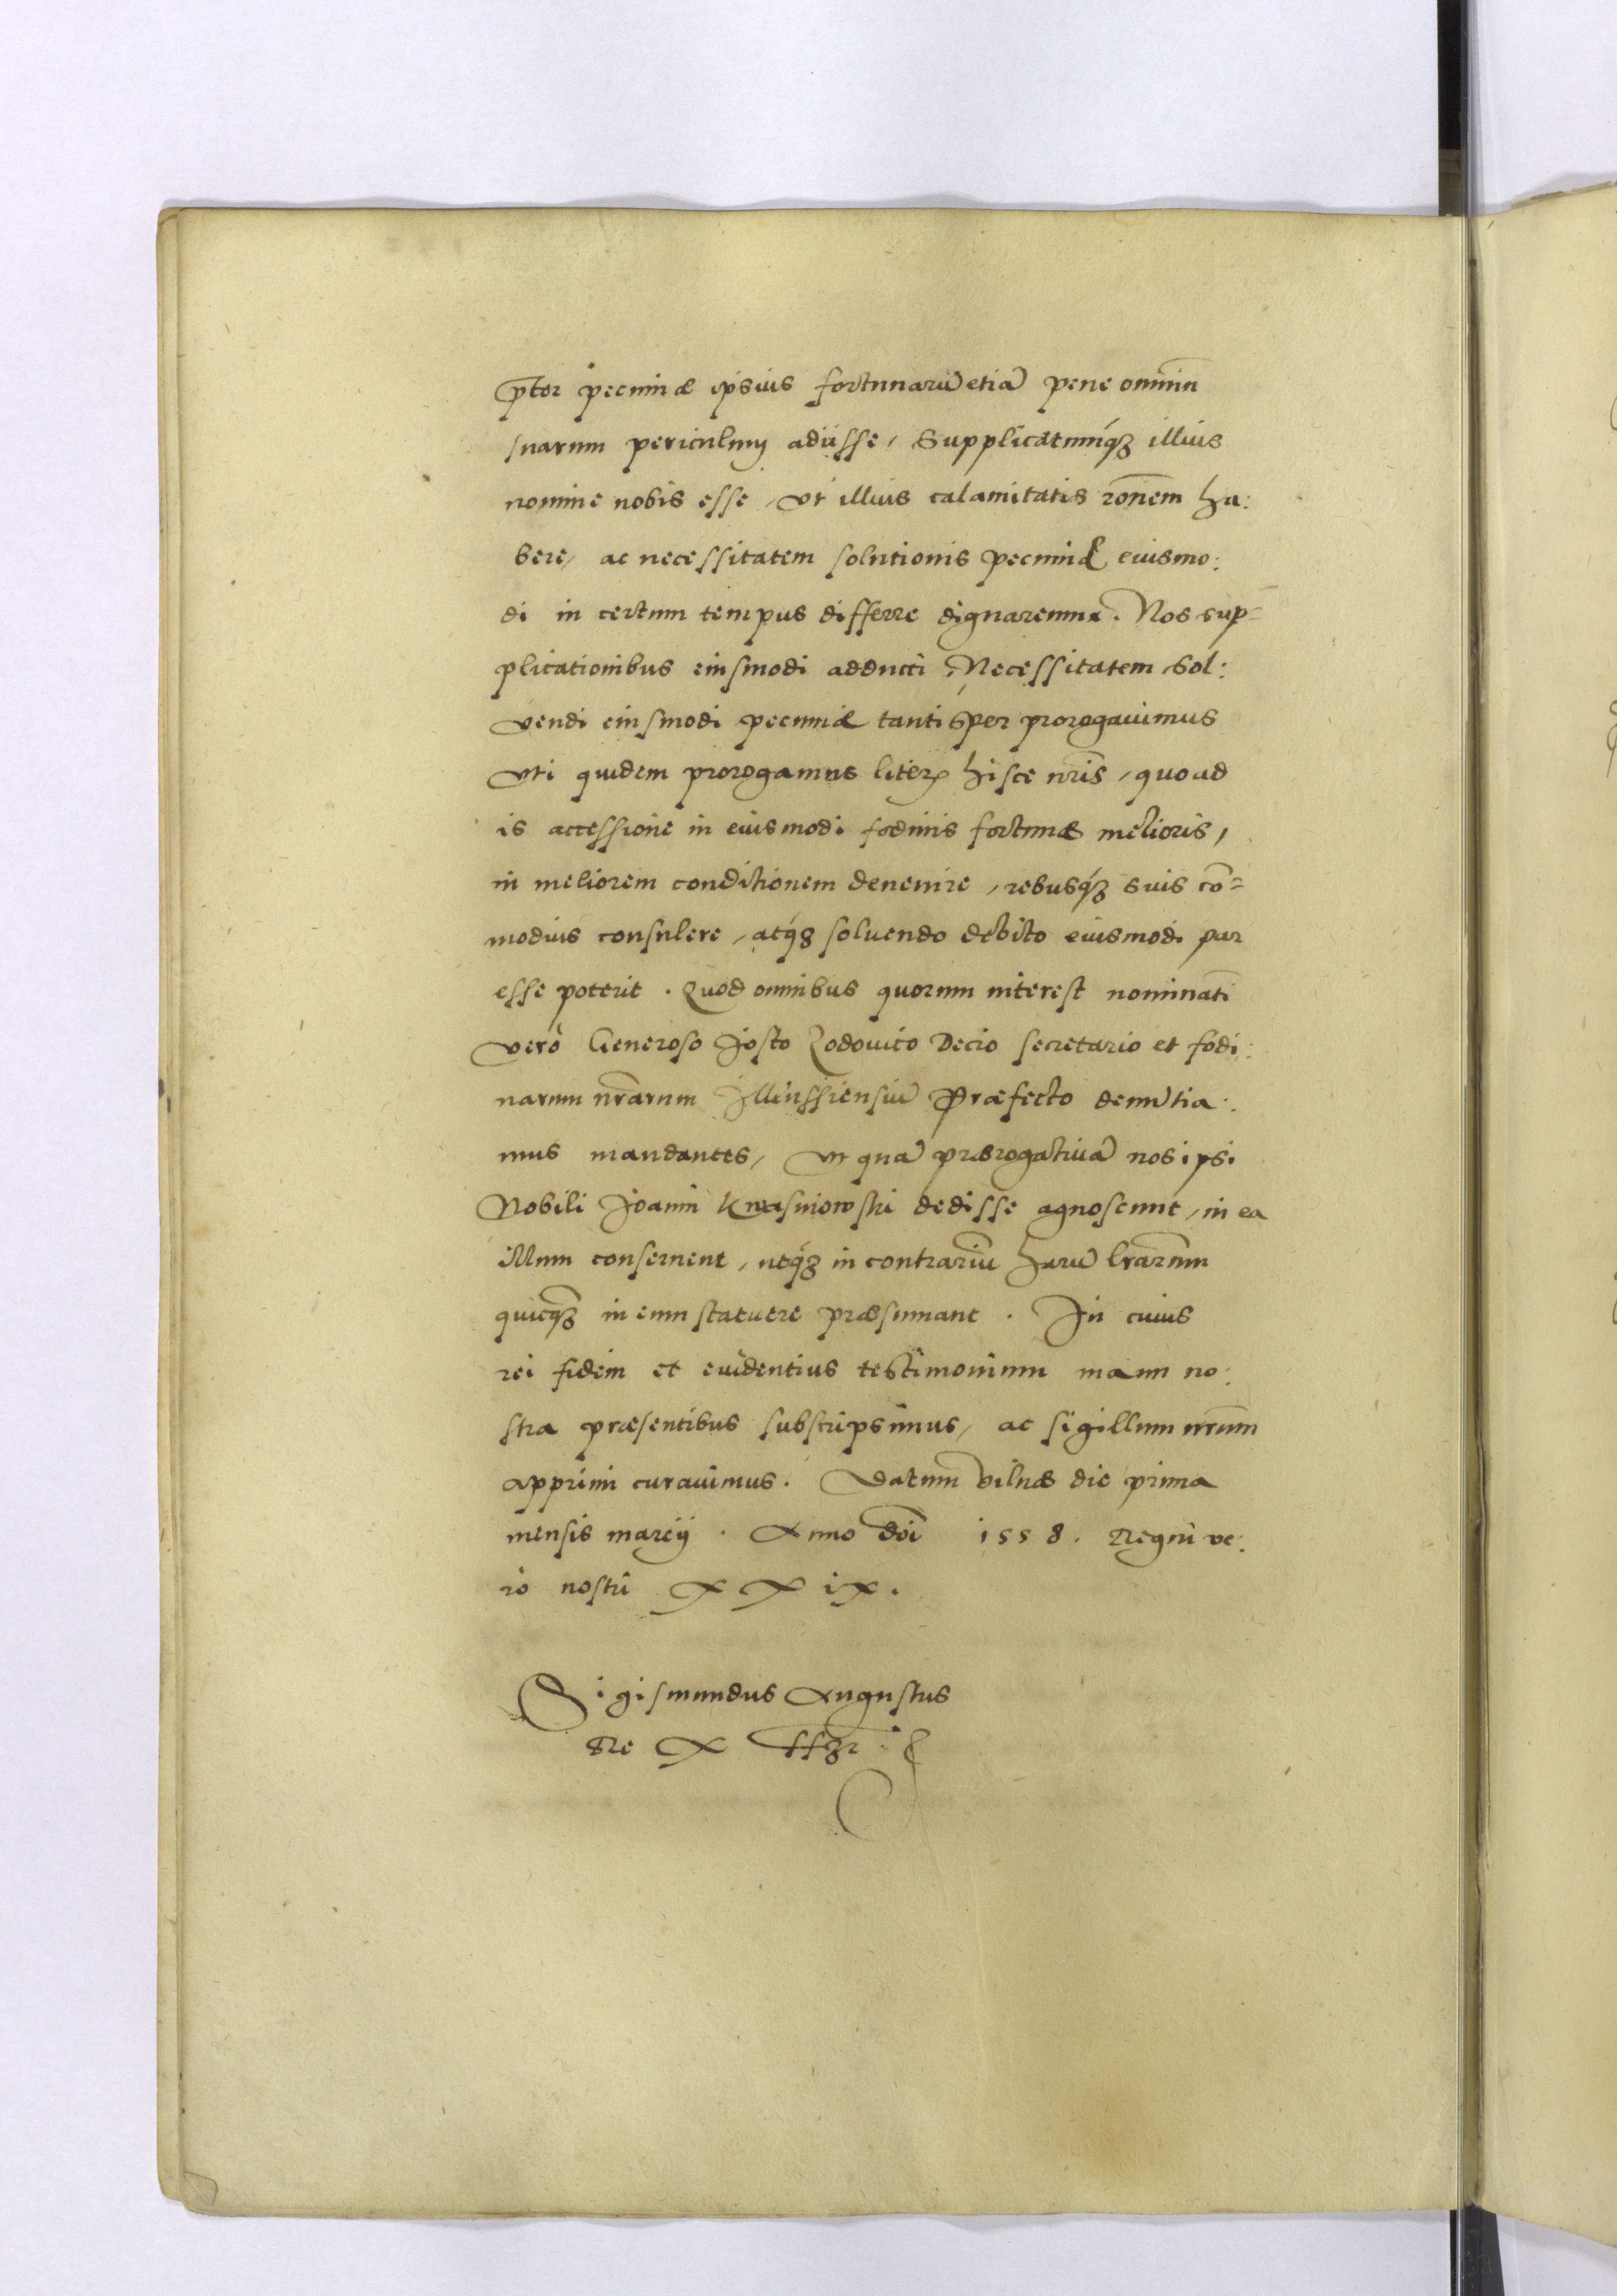 p̄ter pecuniæ ipsius fortunarũ etiã pene omniũ
suarum periculum adiisse, Supplicatumq́ꝫ illius
nomine nobis esse, vt illius calamitatis rōnem ha:
bere, ac necessitatem solutionis pecuniæ eiusmo:
di in certum tempus differre dignaremur. Nos sup=
plicationibus eiusmodi adducti, Necessitatem Sol:
vendi eiusmodi pecuniæ tantisper prorogauimus
vti quidem prorogamus literis hisce nr̄is, quoad
is accessione in eiusmodi fodinis fortunæ melioris,
in meliorem conditionem deuenire, rebusq́ꝫ suis cō=
modius consulere, atq́ꝫ soluendo debito eiusmodi par
esse poterit. Quod omnibus quorum interest nominatī
vero Generoso Josto Lodouico Decio secretario et fodi:
narum nr̄arum Illkussiensiũ Præfecto denũtia:
mus mandantes, vt quã prærogatiuã nos ipsi
Nobili Joanni Kwasniowski dedisse agnoscunt, in ea
illum conseruent, neq́ꝫ in contrariũ harũ lr̄arum
quicq̃ꝫ in eum statuere præsumant. In cuius
rei fidem et euidentius testimonium manu no:
stra præsentibus subscripsimus, ac sigillum nr̄um
apprimi curauimus. Datum Vilnæ die prima
mensis marcij. Anno Dn̄i 1558. Regni ve:
ro nostri XXiX.
Sigismundus Augustus
Rex ssꝫt